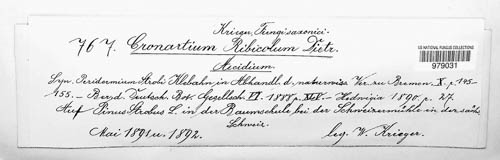 Krieger, Fungi saxonici.
US NATIONAL FUNGUS COLLECTIONS
979031
767. Cronartium Ribicolum Dietr.
Aecidium.
Syn. Peridermium Strobi Klebahn in Abhandl. d. naturwiss. Ver. zu Bremen. X. p. 145-
155. — Ber. d. Deutsch. Bot. Gesellsch. VI. 1888. p. — Hedwigia 1890. p. 27.
Auf Pinus Strobus L. in der Baumschule bei der Schweizermühle in der sächs.
Schweiz.
Mai 1891 u. 1892. leg. W. Krieger.